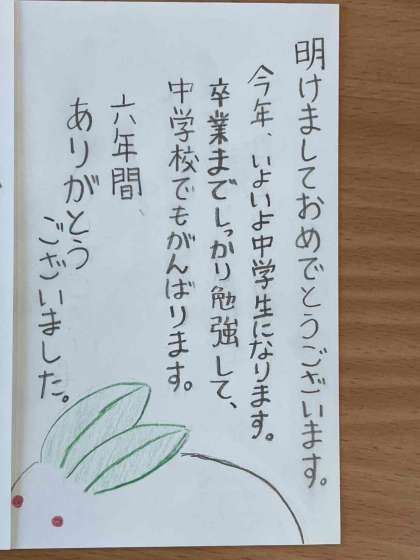 明けましておめでとうございます。
今年、いよいよ中学生になります。
卒業までしっかり勉強して、
中学校でもがんばります。
六年間、
ありがとう
ございました。